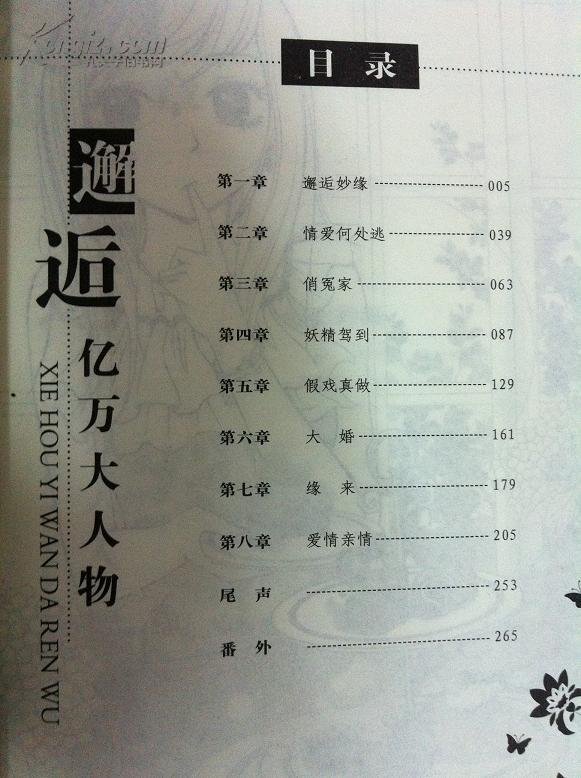 目 录
邂逅
亿万大人物
XIE HOU YI WAN DA REN WU
第一章 邂逅妙缘 005
第二章 情爱何处逃 039
第三章 俏冤家 063
第四章 妖精驾到 087
第五章 假戏真做 129
第六章 大 婚 161
第七章 缘 来 179
第八章 爱情亲情 205
尾 声 253
番 外 265